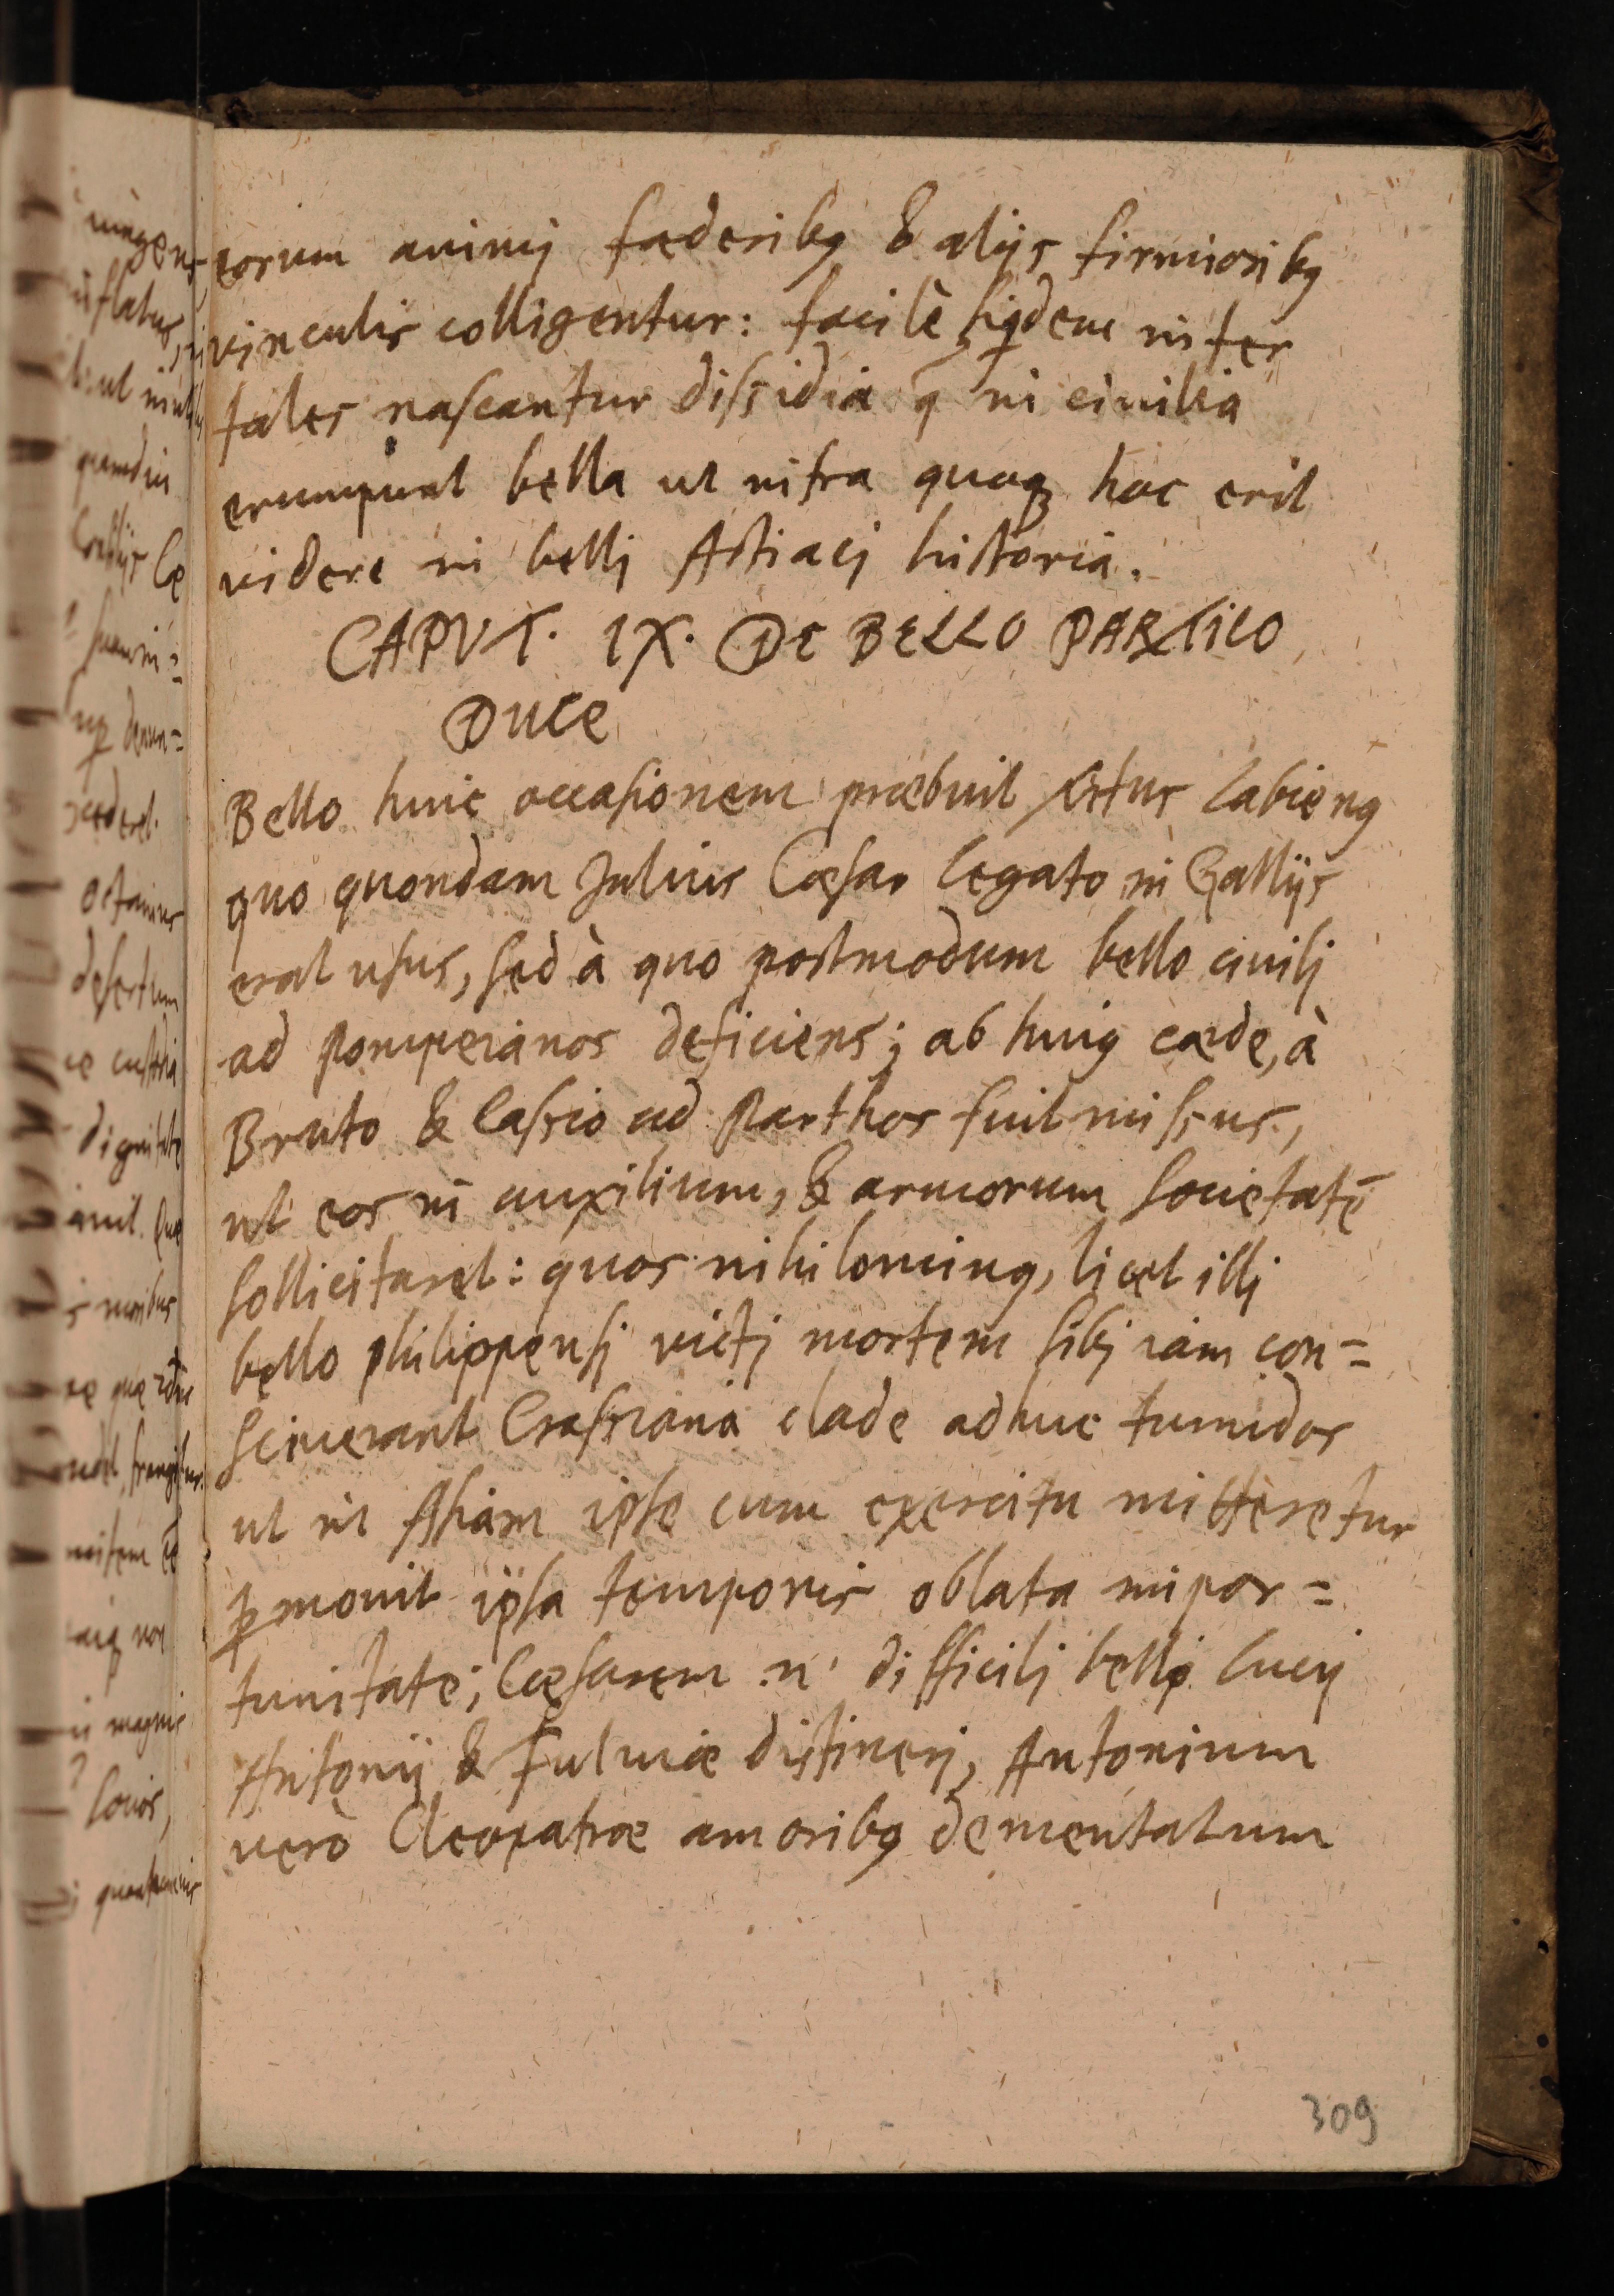 eorum animj fæderibꝯ & alijs firmioribꝯ
vinculis colligentur: facilè siqdem inter
tales nascantur dissidia q̃ in ciuilia
erumpunt bella ut infra quoqꝫ hoc erit
videre in bellj Actiacj historia.
CAPVT. IX. DE BELLO PARTICO
DUCE
Bello huic occasionem præbuit Labienꝯ
quo quondam Julius Cæsar legato in Gallijs
erat usus, sed à quo postmodum bello ciuilj
ad Pompeianos deficiens; ab huiꝯ cæde, à
Bruto & Cassio ad Parthos fuit missus,
ut eos in auxilium, & armorum societatē
sollicitaret: quos nihilominꝯ, licet illj
bello philippensj victj mortem sibj iam con=
sciuerant Crassiana clade adhuc tumidos
ut in Asiam ipse cum exercitu mitteretur
ꝑmouit ipsa temporis oblata inpor=
tunitate; Cæsarem .n. difficilj bello Lucij
Antonij & Fuluiæ distinerj, Antonium
uerò Cleopatræ amoribꝯ dementatum
309